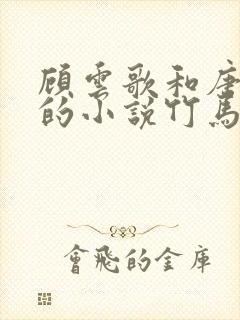 顧雲歌和唐
的小說竹馬
會飛的金庫